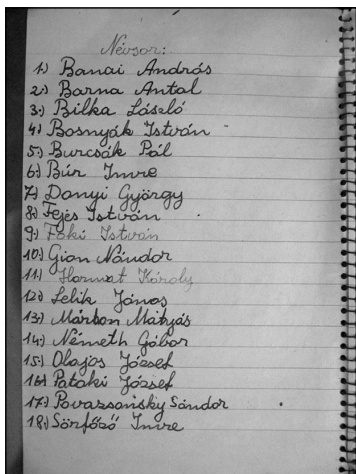 Névsor:
1.) Banai András
2.) Barna Antal
3.) Bilka László
4.) Bosnyák István
5.) Burcsák Pál
6.) Búr Imre
7.) Danyi György
8.) Fejes István
9.) Fóki István
10.) Gion Nándor
11.) Hormat Károly
12.) Lelik János
13.) Márton Mátyás
14.) Németh Gábor
15.) Olajos József
16.) Pataki József
17.) Povazsánsky Sándor
18.) Sörfőző Imre